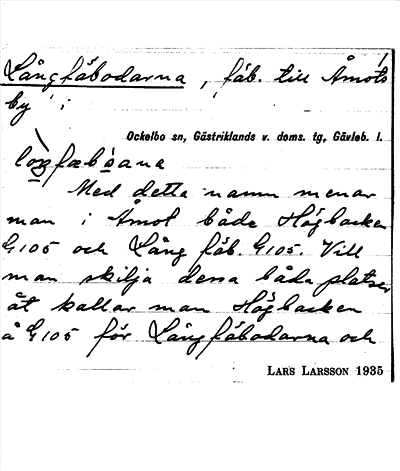 Långfäbodarna, fäb. till Åmots
by i
Ockelbo sn, Gästriklands v. doms. tg, Gävleb. l.
Med detta namn menar
man i Åmot både Högbacken
G105 och Lång fäb. G105. Vill
man skilja dessa båda platser
åt kallar man Högbacken
å G105 för Långfäbodarna och
LARS LARSSON 1935